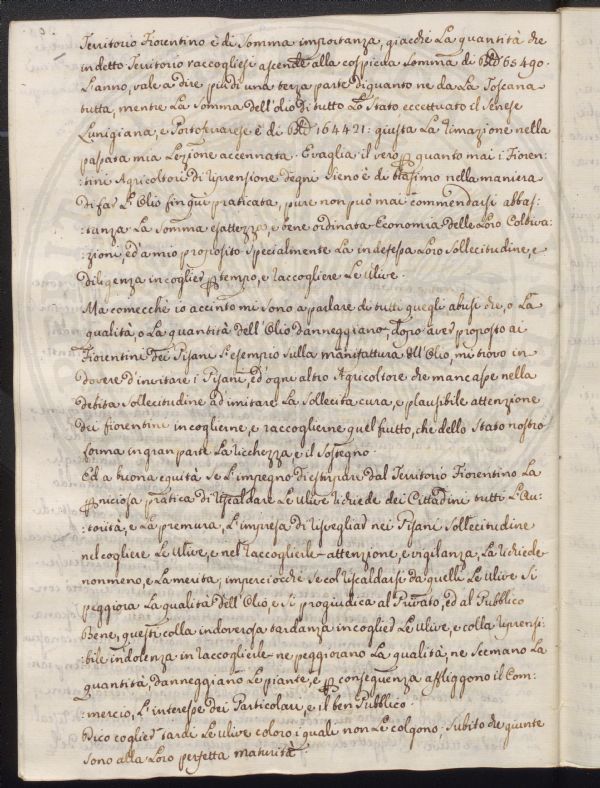 Territorio Fiorentino è di Somma importanza, giacchè La quantità che
indetto Territorio raccogliesi ascende alla cospicua Somma di 65490.
L'anno, vale a dire più di una terza parte di quanto ne da La Toscana
tutta, mentre La Somma dell'olio di tutto Lo Stato eccettuato il Senese
Lunigiana, e Portoferrarese è di 164421: giusta La Rimazione nella
passata mia Lezione accennata. E vaglia il vero quanto mai i Fioren-
:tini Agricoltori di riprensione degni sieno e di biasimo nella maniera
di far L'Olio fin qui praticata, pure non può mai commendarsi abbas:
:tanza La Somma esattezza, e bene ordinata Economia delle Loro Coltiva:
:zioni, ed a mio proposito Specialmente La indefessa Loro Sollecitudine, e
diligenza in coglier tempo, e raccogliere Le Ulive.
Ma comecchè io accinto mi Sono a parlare di tutti quegli abusi che, o La
qualità, o La quantità dell'Olio danneggiano, dopo aver proposto ai
Fiorentini dei Pisani L'esempio Sulla manifattura dell'Olio, mi trovo in
dovere d'invitare i Pisani, ed ogni altro Agricoltore che mancasse nella
debita Sollecitudine ad imitare La Sollecita cura, e plausibile attenzione
dei fiorentini in coglierne, e raccoglierne quel frutto, che dello Stato nostro
forma in gran parte La ricchezza, e il Sostegno.
Ed a buona equità Se L'impegno di estirpare dal Territorio Fiorentino La
perniciosa pratica di riscaldare Le Ulive richiede dei Cittadini tutti L'Au-
:torità, e La premura, L'impresa di risvegliar nei Pisani Sollecitudine
nel cogliere Le Ulive, e nel raccoglierle attenzione, e vigilanza, La richiede
nonmeno, e La merita; imperciocchè Se col riscaldarsi da quelli Le Ulive Si
peggiora La qualità dell'Olio, e Si progiudica al Privato, ed al Pubblico
Bene, questi colla indoverosa tardanza in coglier Le Ulive, e colla riprensi:
:bile indolenza in raccoglierle ne peggiorano La qualità, ne Scemano La
quantità, danneggiano Le piante, e per conseguenza affliggono il Com-
:mercio, L'interesse dei Particolari, e il ben Pubblico.
Dico coglier tardi Le Ulive coloro i quali non Le colgono, Subito che giunte
Sono alla Loro perfetta maturità.